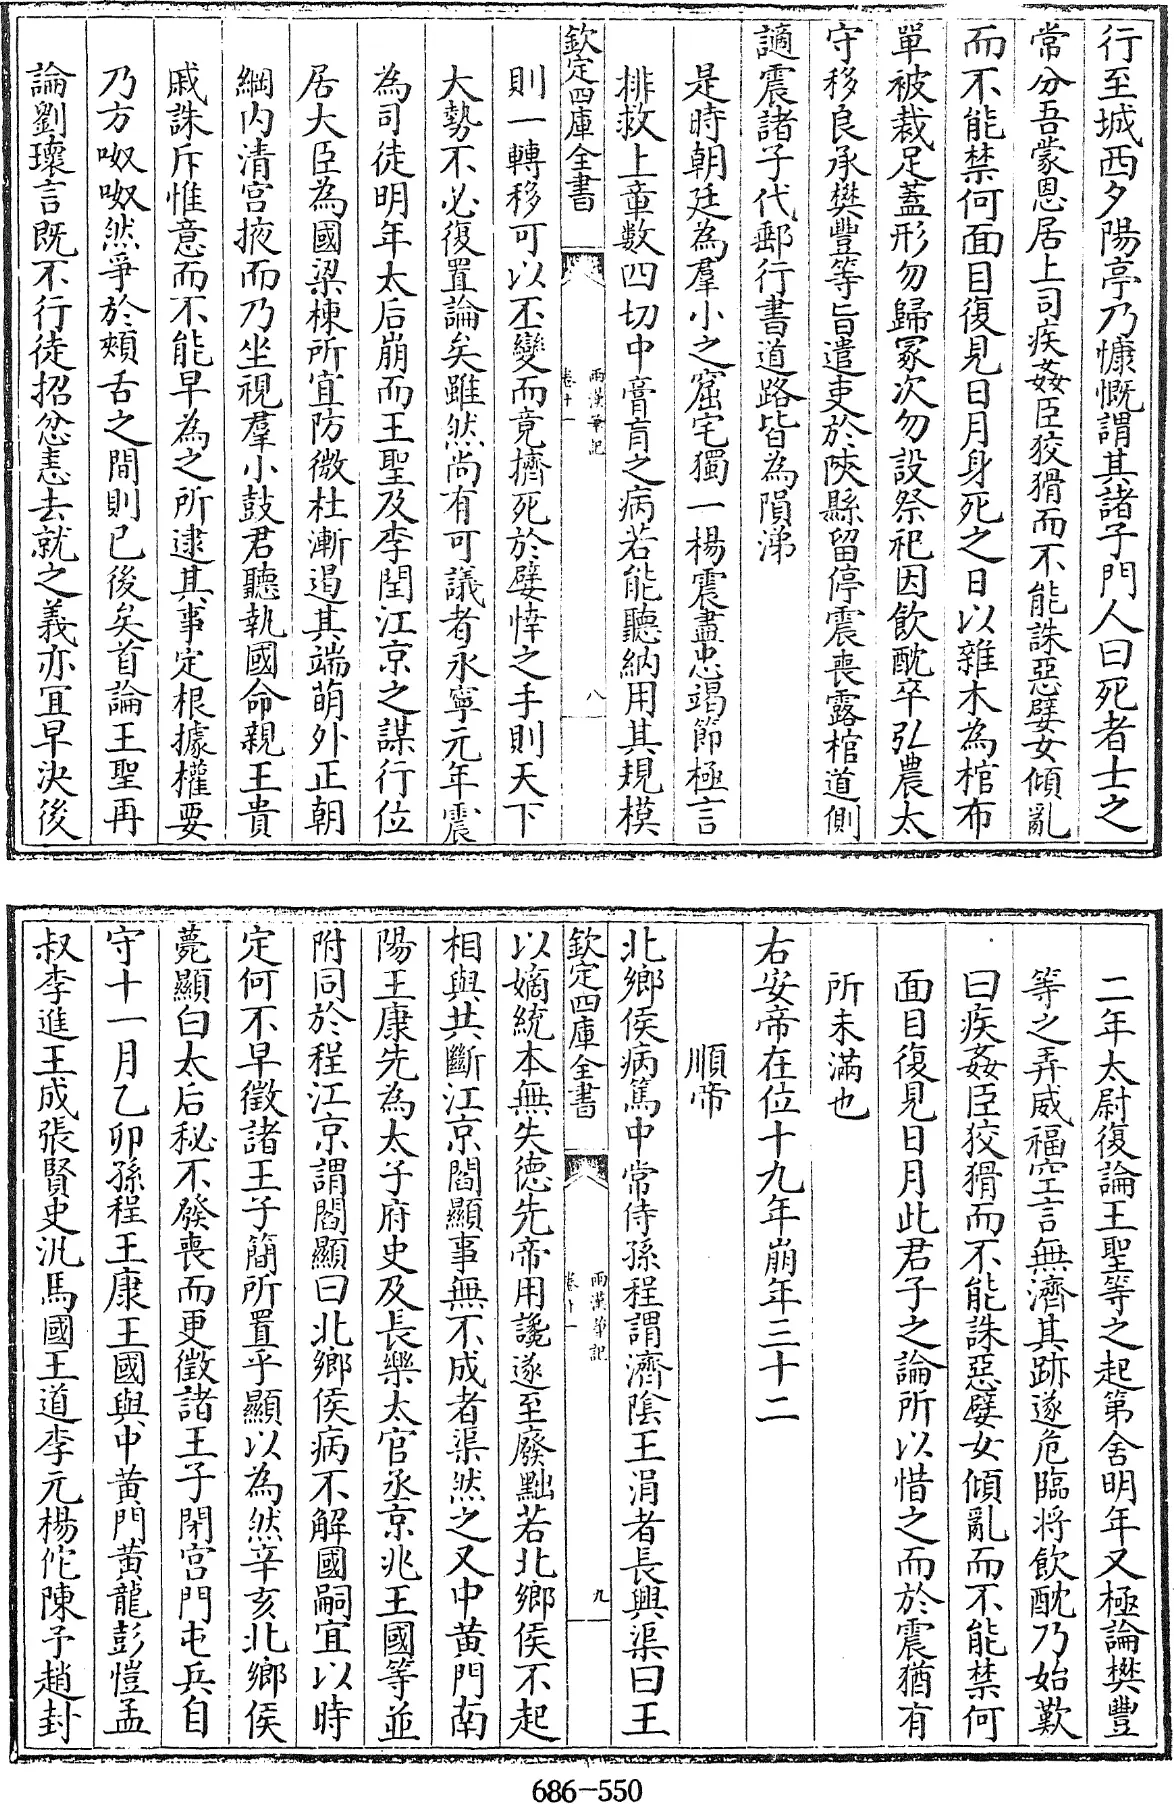 行至城西夕陽亭乃慷慨謂其諸子門人曰死者士之
常分吾蒙恩居上司疾姦臣狡猾而不能誅惡嬖女傾亂
而不能禁何面目復見日月身死之日以雜木為棺布
單被裁足蓋形勿歸冢次勿設祭祀因飲酖卒弘農太
守移良承樊豐等旨遣吏於陜縣留停震喪露棺道側
謫震諸子代郵行書道路皆為隕涕
是時朝廷為羣小之窟宅獨一楊震盡忠竭節極言
排救上章數四切中膏肓之病若能聽納用其規模
欽定四庫全書
兩漢筆記
卷十一
八
則一轉移可以丕變而竟擠死於嬖倖之手則天下
大勢不必復置論矣雖然尚有可議者永寧元年震
為司徒明年太后崩而王聖及李閏江京之謀行位
居大臣為國梁棟所宜防微杜漸遏其端萌外正朝
綱内清宮掖而乃坐視羣小鼓君聽執國命親王貴
戚誅斥惟意而不能早為之所逮其事定根據權要
乃方呶呶然爭於頰舌之間則已後矣首論王聖再
論劉瓌言既不行徒招忿恚去就之義亦宜早決後
二年太尉復論王聖等之起第舍明年又極論樊豐
等之弄威福空言無濟其跡遂危臨將飲酖乃始歎
曰疾姦臣狡猾而不能誅惡嬖女傾亂而不能禁何
面目復見日月此君子之論所以惜之而於震猶有
所未滿也
右安帝在位十九年崩年三十二
順帝
北鄉侯病篤中常侍孫程謂濟陰王涓者長興渠曰王
欽定四庫全書
兩漢筆記
卷十一
九
以嫡統本無失德先帝用讒遂至廢黜若北鄉侯不起
相與共斷江京閻顯事無不成者渠然之又中黄門南
陽王康先為太子府史及長樂太官丞京兆王國等並
附同於程江京謂閻顯曰北鄉侯病不解國嗣宜以時
定何不早徵諸王子簡所置乎顯以為然辛亥北鄉侯
薨顯白太后秘不發喪而更徵諸王子閉宮門屯兵自
守十一月乙卯孫程王康王國與中黄門黄龍彭愷孟
叔李進王成張賢史汎馬國王道李元楊佗陳予趙封
686-550